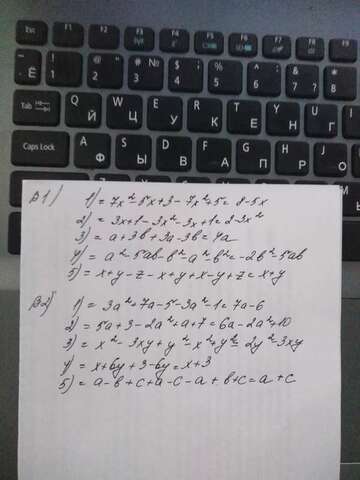 Esc F1 F2 F3 F4 F5 F6 F7 F8 F9
~ Ё ! 1 @ " 2 # № 3 $ ; 4 % 5 ^ : 6 & ? 7 * 8
Tab Q Й W Ц E У R К T Е Y Н U Г
Caps Lock A Ф S Ы D В F А G П H Р J О
В1) 1) = 7x²-5x+3-7x²+5=8-5x
2) = 3x+1-3x²-3x+1=2-3x²
3) = a+3b+3a-3b=4a
4) = a²-5ab-b²-a²-b²=-2b²-5ab
5) = x+y-z-x+y+x-y+z=x+y
В2) 1) = 3a²+7a-5-3a²-1=7a-6
2) = 5a+3-2a²+a+7=6a-2a²+10
3) = x²-3xy+y²-x²+y²=2y²-3xy
4) = x+6y+3-6y=x+3
5) = a-b+c+a-c-a+b+c=a+c